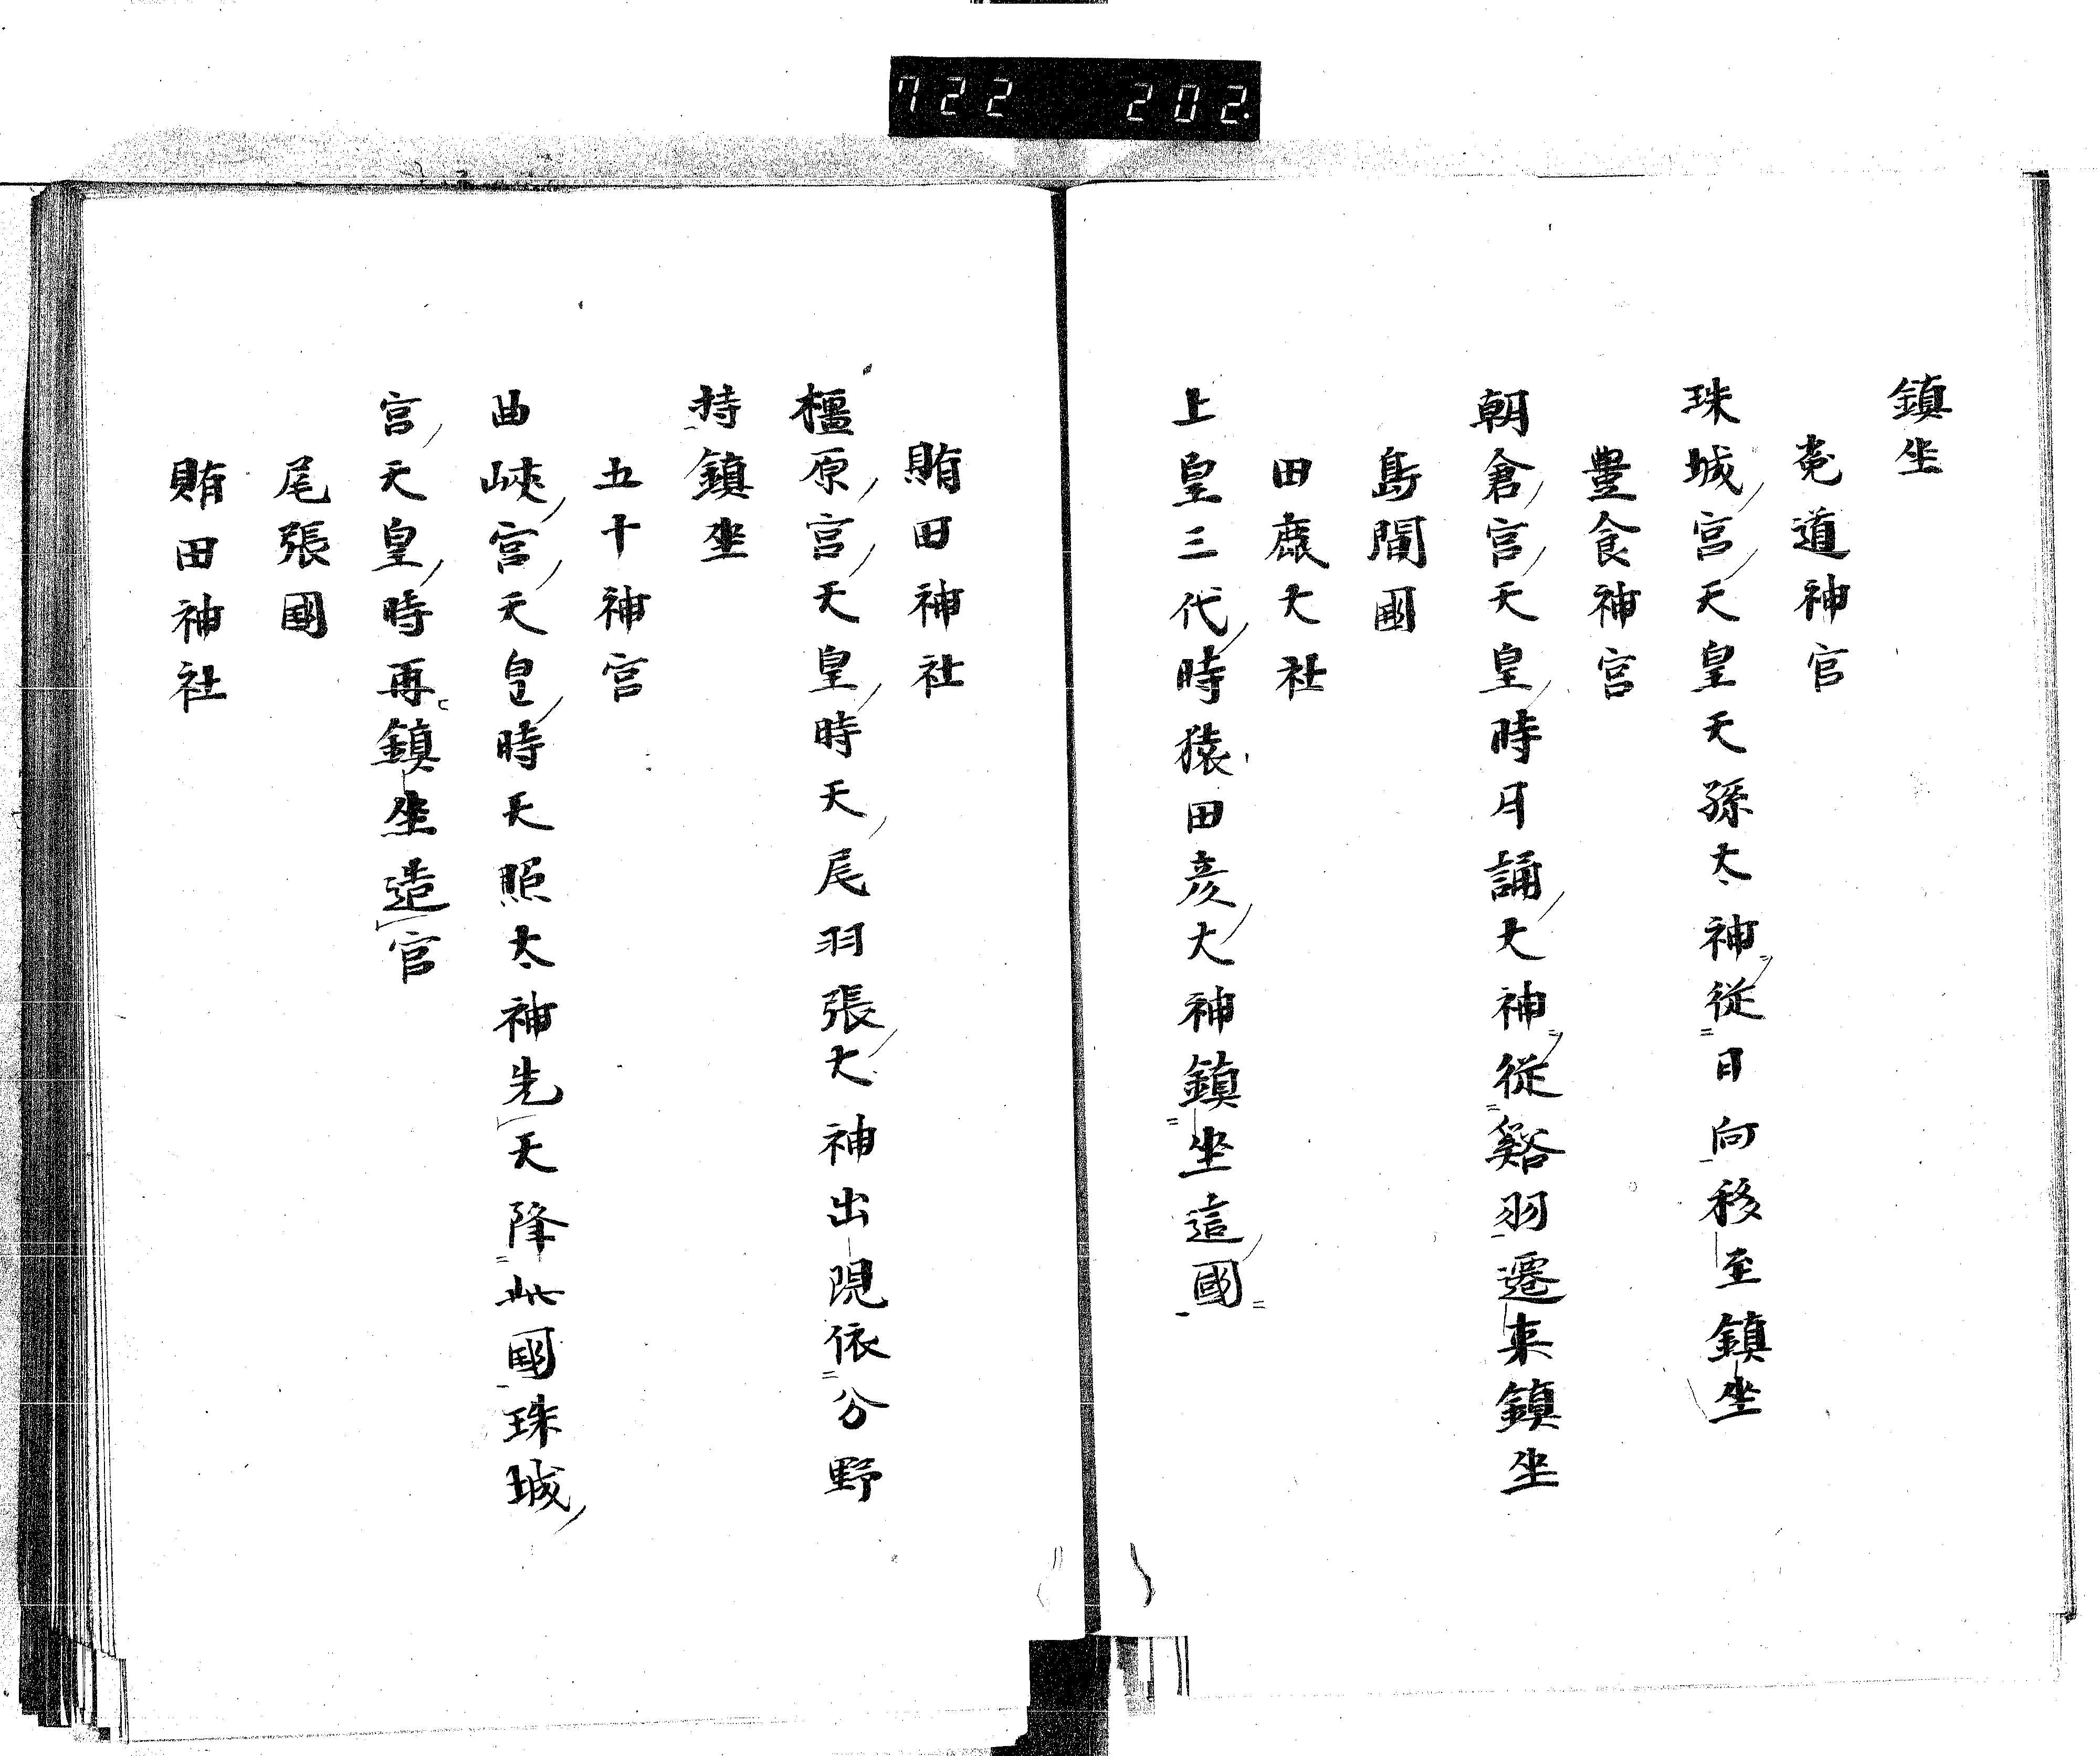 722 202.
鎮坐
莵道神宮
珠城宮天皇天孫太神從日向移至鎮坐
豊食神宮
朝倉宮天皇時月誦大神從谿羽遷来鎮坐
島間國
田麻大社
上皇三代時猿田彦大神鎮坐這國
賄田神社
橿原宮天皇時天尾羽張大神出現依分野
持鎮坐
五十神宮
曲峽宮天皇時天照太神先天降此國珠城
宮天皇時再鎮坐造宮
尾張國
賄田神社